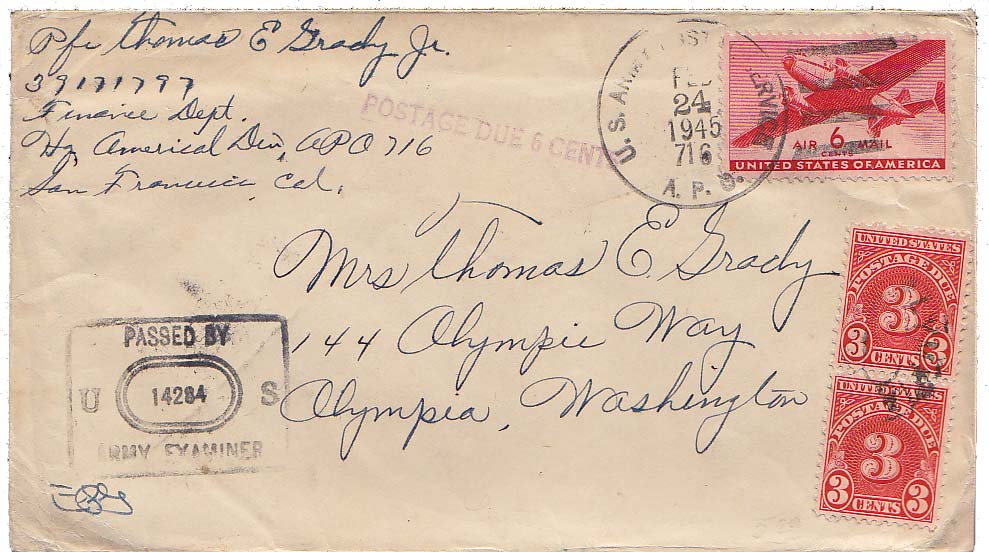 Pfc Thomas E Grady Jr.
39171797
Finance Dept.
Hq Americal Div, APO 716
San Francisco Cal.
POSTAGE DUE 6 CENTS
U.S. ARMY POSTAL SERVICE
FEB
24
1945
716
A.P.S.
AIR 6 MAIL
CENTS
UNITED STATES OF AMERICA
Mrs Thomas E Grady
144 Olympic Way
Olympia, Washington
UNITED STATES
POSTAGE DUE
3
3 CENTS 3
UNITED STATES
POSTAGE DUE
3
3 CENTS 3
PASSED BY
U 14284 S
ARMY EXAMINER